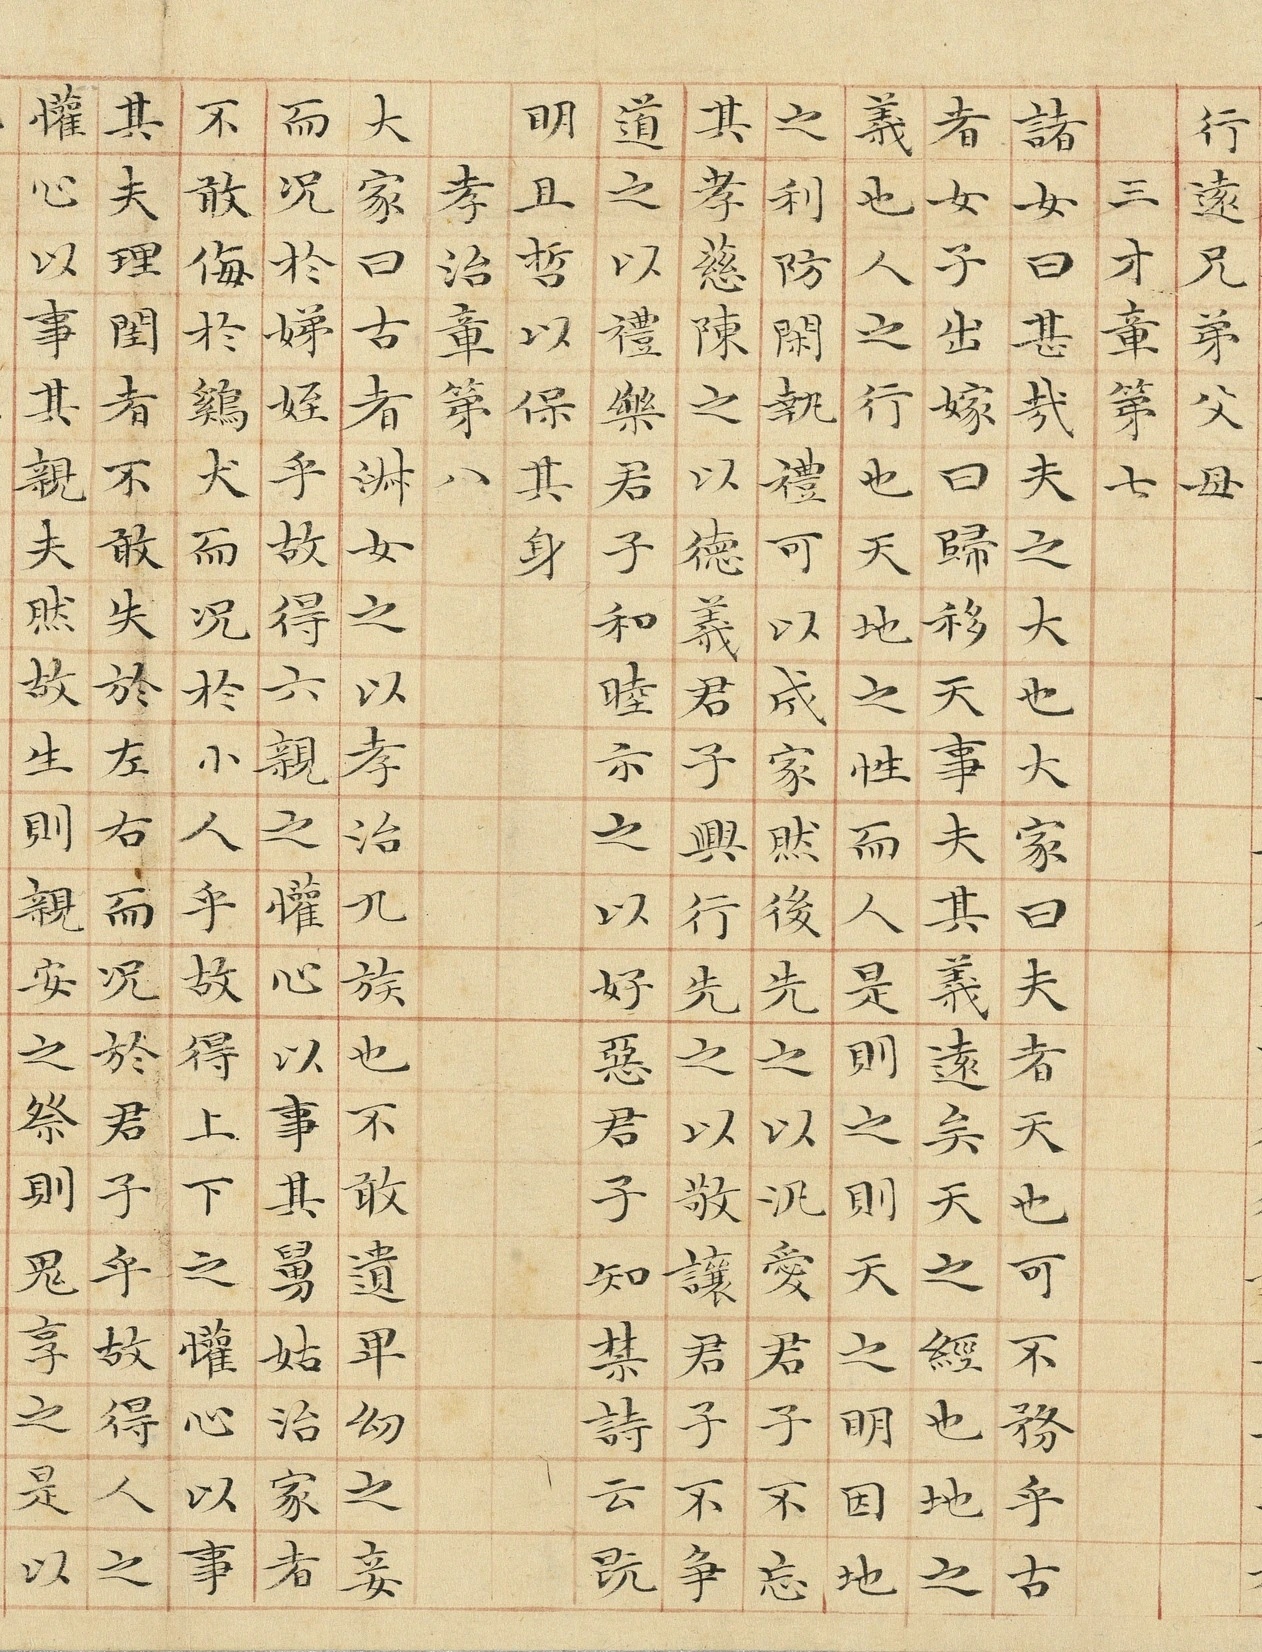 行遠兄弟父母
三才章第七
諸女曰甚哉夫之大也大家曰夫者天也可不務乎古
者女子出嫁曰歸移天事夫其義遠矣天之經也地之
義也人之行也天地之性而人是則之則天之明因地
之利防閑執禮可以成家然後先之以汎愛君子不忘
其孝慈陳之以德義君子興行先之以敬讓君子不争
道之以禮樂君子和睦示之以好惡君子知禁詩云既
明且哲以保其身
孝治章第八
大家曰古者淋女之以孝治九族也不敢遺卑幼之妾
而况於娣姪乎故得六親之懽心以事其舅姑治家者
不敢侮於鷄犬而况於小人乎故得上下之懽心以事
其夫理閨者不敢失於左右而况於君子乎故得人之
懽心以事其親夫然故生則親安之祭則鬼享之是以